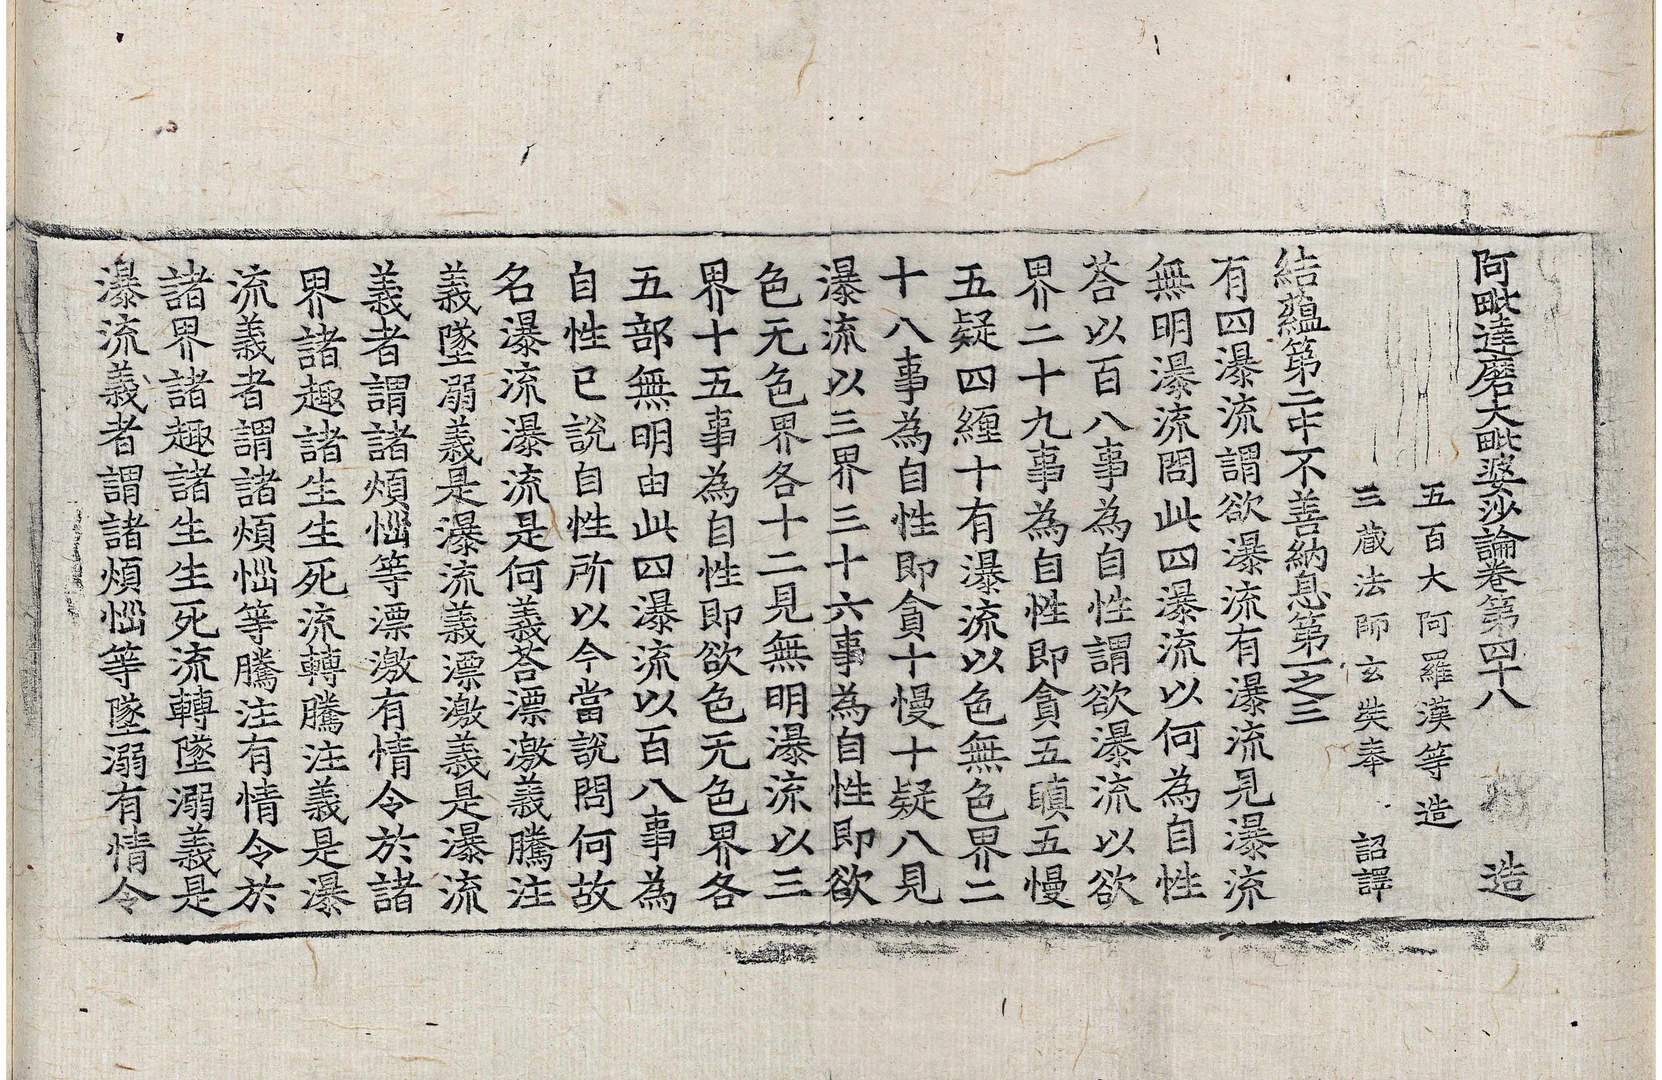 阿毗達磨大毗婆沙論卷第四十八 造
五百大阿羅漢等造
三藏法師玄奘奉 詔譯
結蘊第二中不善納息第一之三
有四瀑流謂欲瀑流有瀑流見瀑流
無明瀑流問此四瀑流以何為自性
荅以百八事為自性謂欲瀑流以欲
界二十九事為自性即貪五瞋五慢
五疑四纏十有瀑流以色無色界二
十八事為自性即貪十慢十疑八見
瀑流以三界三十六事為自性即欲
色无色界各十二見無明瀑流以三
界十五事為自性即欲色无色界各
五部無明由此四瀑流以百八事為
自性已說自性所以今當說問何故
名瀑流瀑流是何義荅漂激義騰注
義墜溺義是瀑流義漂激義是瀑流
義者謂諸煩惱等漂激有情令於諸
界諸趣諸生生死流轉騰注義是瀑
流義者謂諸煩惱等騰注有情令於
諸界諸趣諸生生死流轉墜溺義是
瀑流義者謂諸煩惱等墜溺有情令